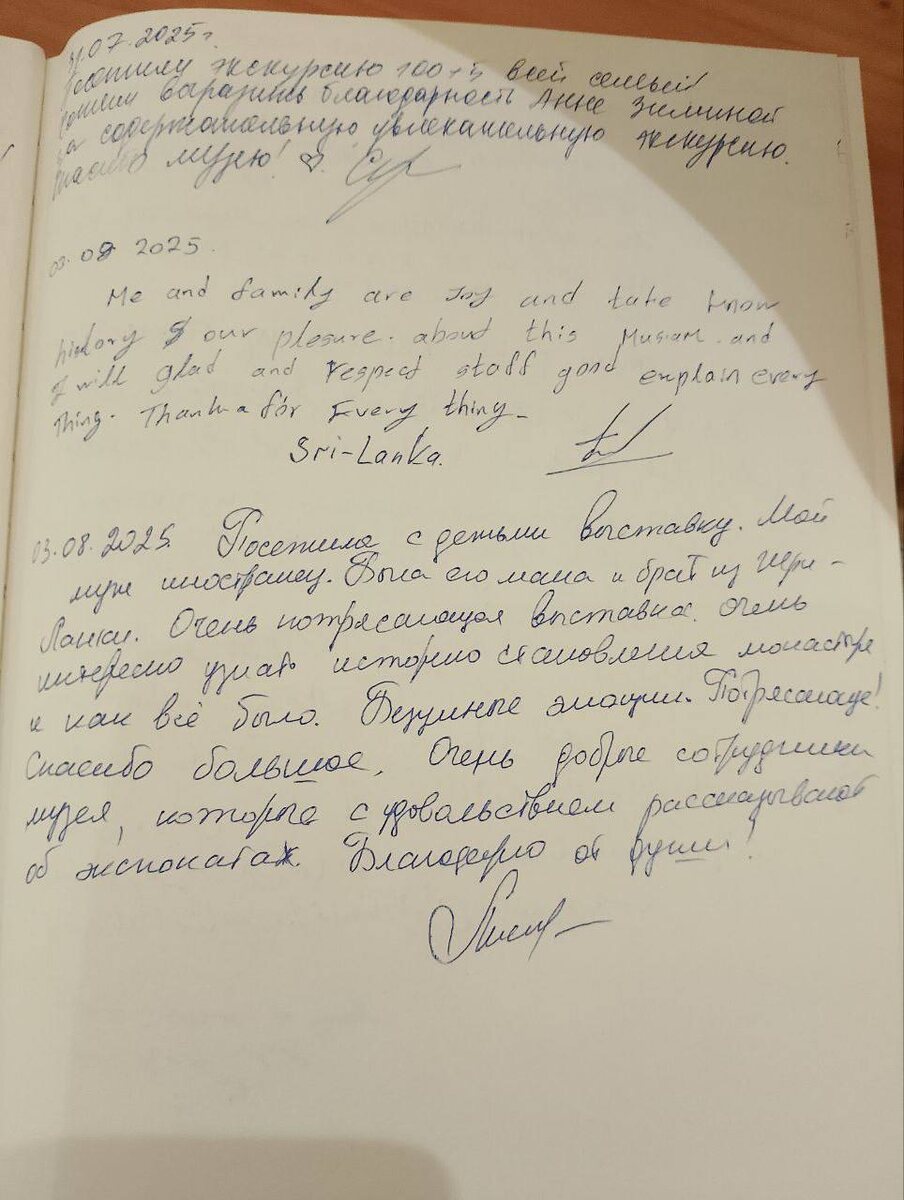 31.07.2025г.
Посетили экскурсию 100+5 всей семьёй
Хотим выразить благодарность Анне Зиминой
за содержательную увлекательную экскурсию.
Спасибо музею! ♡.
03.08 2025.
Me and family are Joy and take know
history & our plesure. about this Musiam. and
I will glad and respect staff good explain every
thing. Thanks for Every thing_
Sri-Lanka.
03.08.2025. Посетила с детьми выставку. Мой
муж иностранец. Была его мама и брат из Шри-
Ланки. Очень потрясающая выставка. Очень
интересно узнать историю становления монастыря
и как всё было. Безумные эмоции. Потрясающе!
Спасибо большое. Очень добрые сотрудники
музея, которые с удовольствием рассказывают
об экспонатах. Благодарю от души!